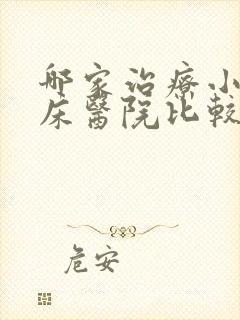 哪家治療小
床醫院比較
危安